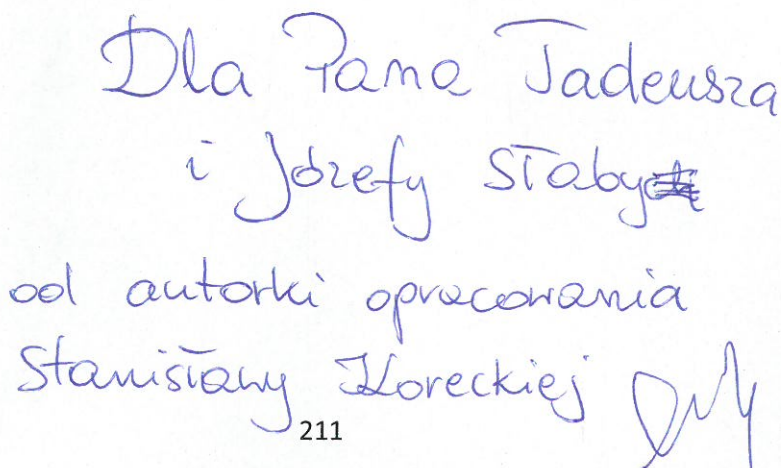 Dla Pana Tadeusza
i Józefy Słaby
od autorki opracowania
Stanisławy Koreckiej
211